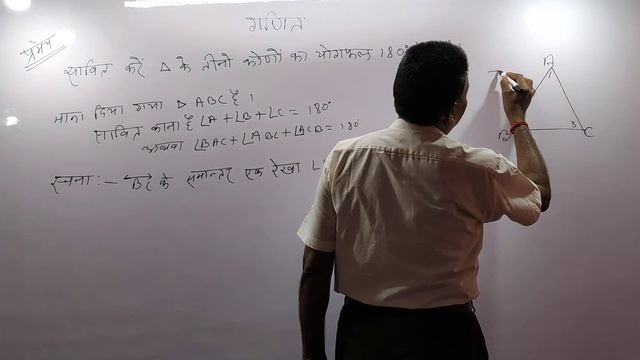 गणित
प्रमेय
साबित करें △ के तीनो कोणों का योगफल 180°
माना दिया गया △ ABC है ।
साबित करना है ∠A + ∠B + ∠C = 180°
अथवा ∠BAC + ∠ABC + ∠ACB = 180
रचना :- BC के समान्तर एक रेखा L
A
B
3
C